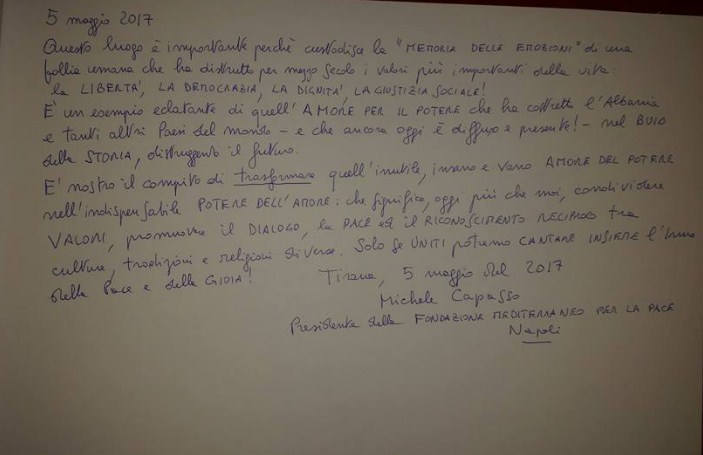 5 maggio 2017
Questo luogo è importante perché custodisce la "MEMORIA DELLE EMOZIONI" di una
follia umana che ha distrutto per mezzo secolo i valori più importanti della vita:
la LIBERTÀ, LA DEMOCRAZIA, LA DIGNITÀ, LA GIUSTIZIA SOCIALE!
E' un esempio eclatante di quell'AMORE PER IL POTERE che ha costretto l'Albania
e tanti altri Paesi del mondo - e che ancora oggi è diffuso e presente! - nel BUIO
della STORIA, distruggendo il futuro.
E' nostro il compito di trasformare quell'inutile, insano e vano AMORE DEL POTERE
nell'indispensabile POTERE DELL'AMORE: che significa, oggi più che mai, condividere
VALORI, promuovere il DIALOGO, la PACE ed il RICONOSCIMENTO RECIPROCO tra
culture, tradizioni e religioni diverse. Solo se UNITI potremo CANTARE INSIEME l'Inno
della Pace e della GIOIA!
Tirana, 5 maggio del 2017
Michele Capasso
Presidente della FONDAZIONE MEDITERRANEO PER LA PACE
Napoli